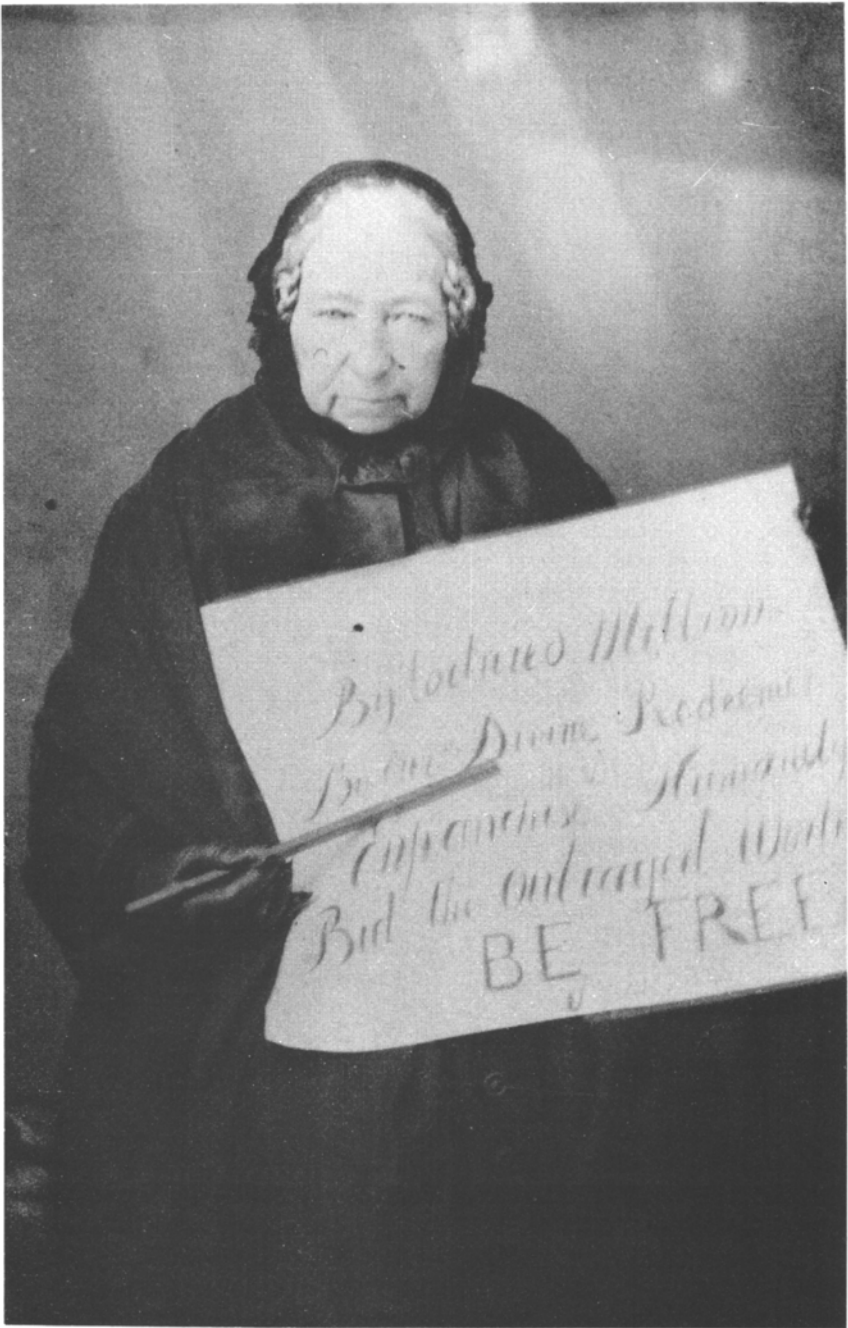 By tortured Million
By our Divine Redeemer
Enfranchise Humanity
Bid the Outraged World
BE FREE